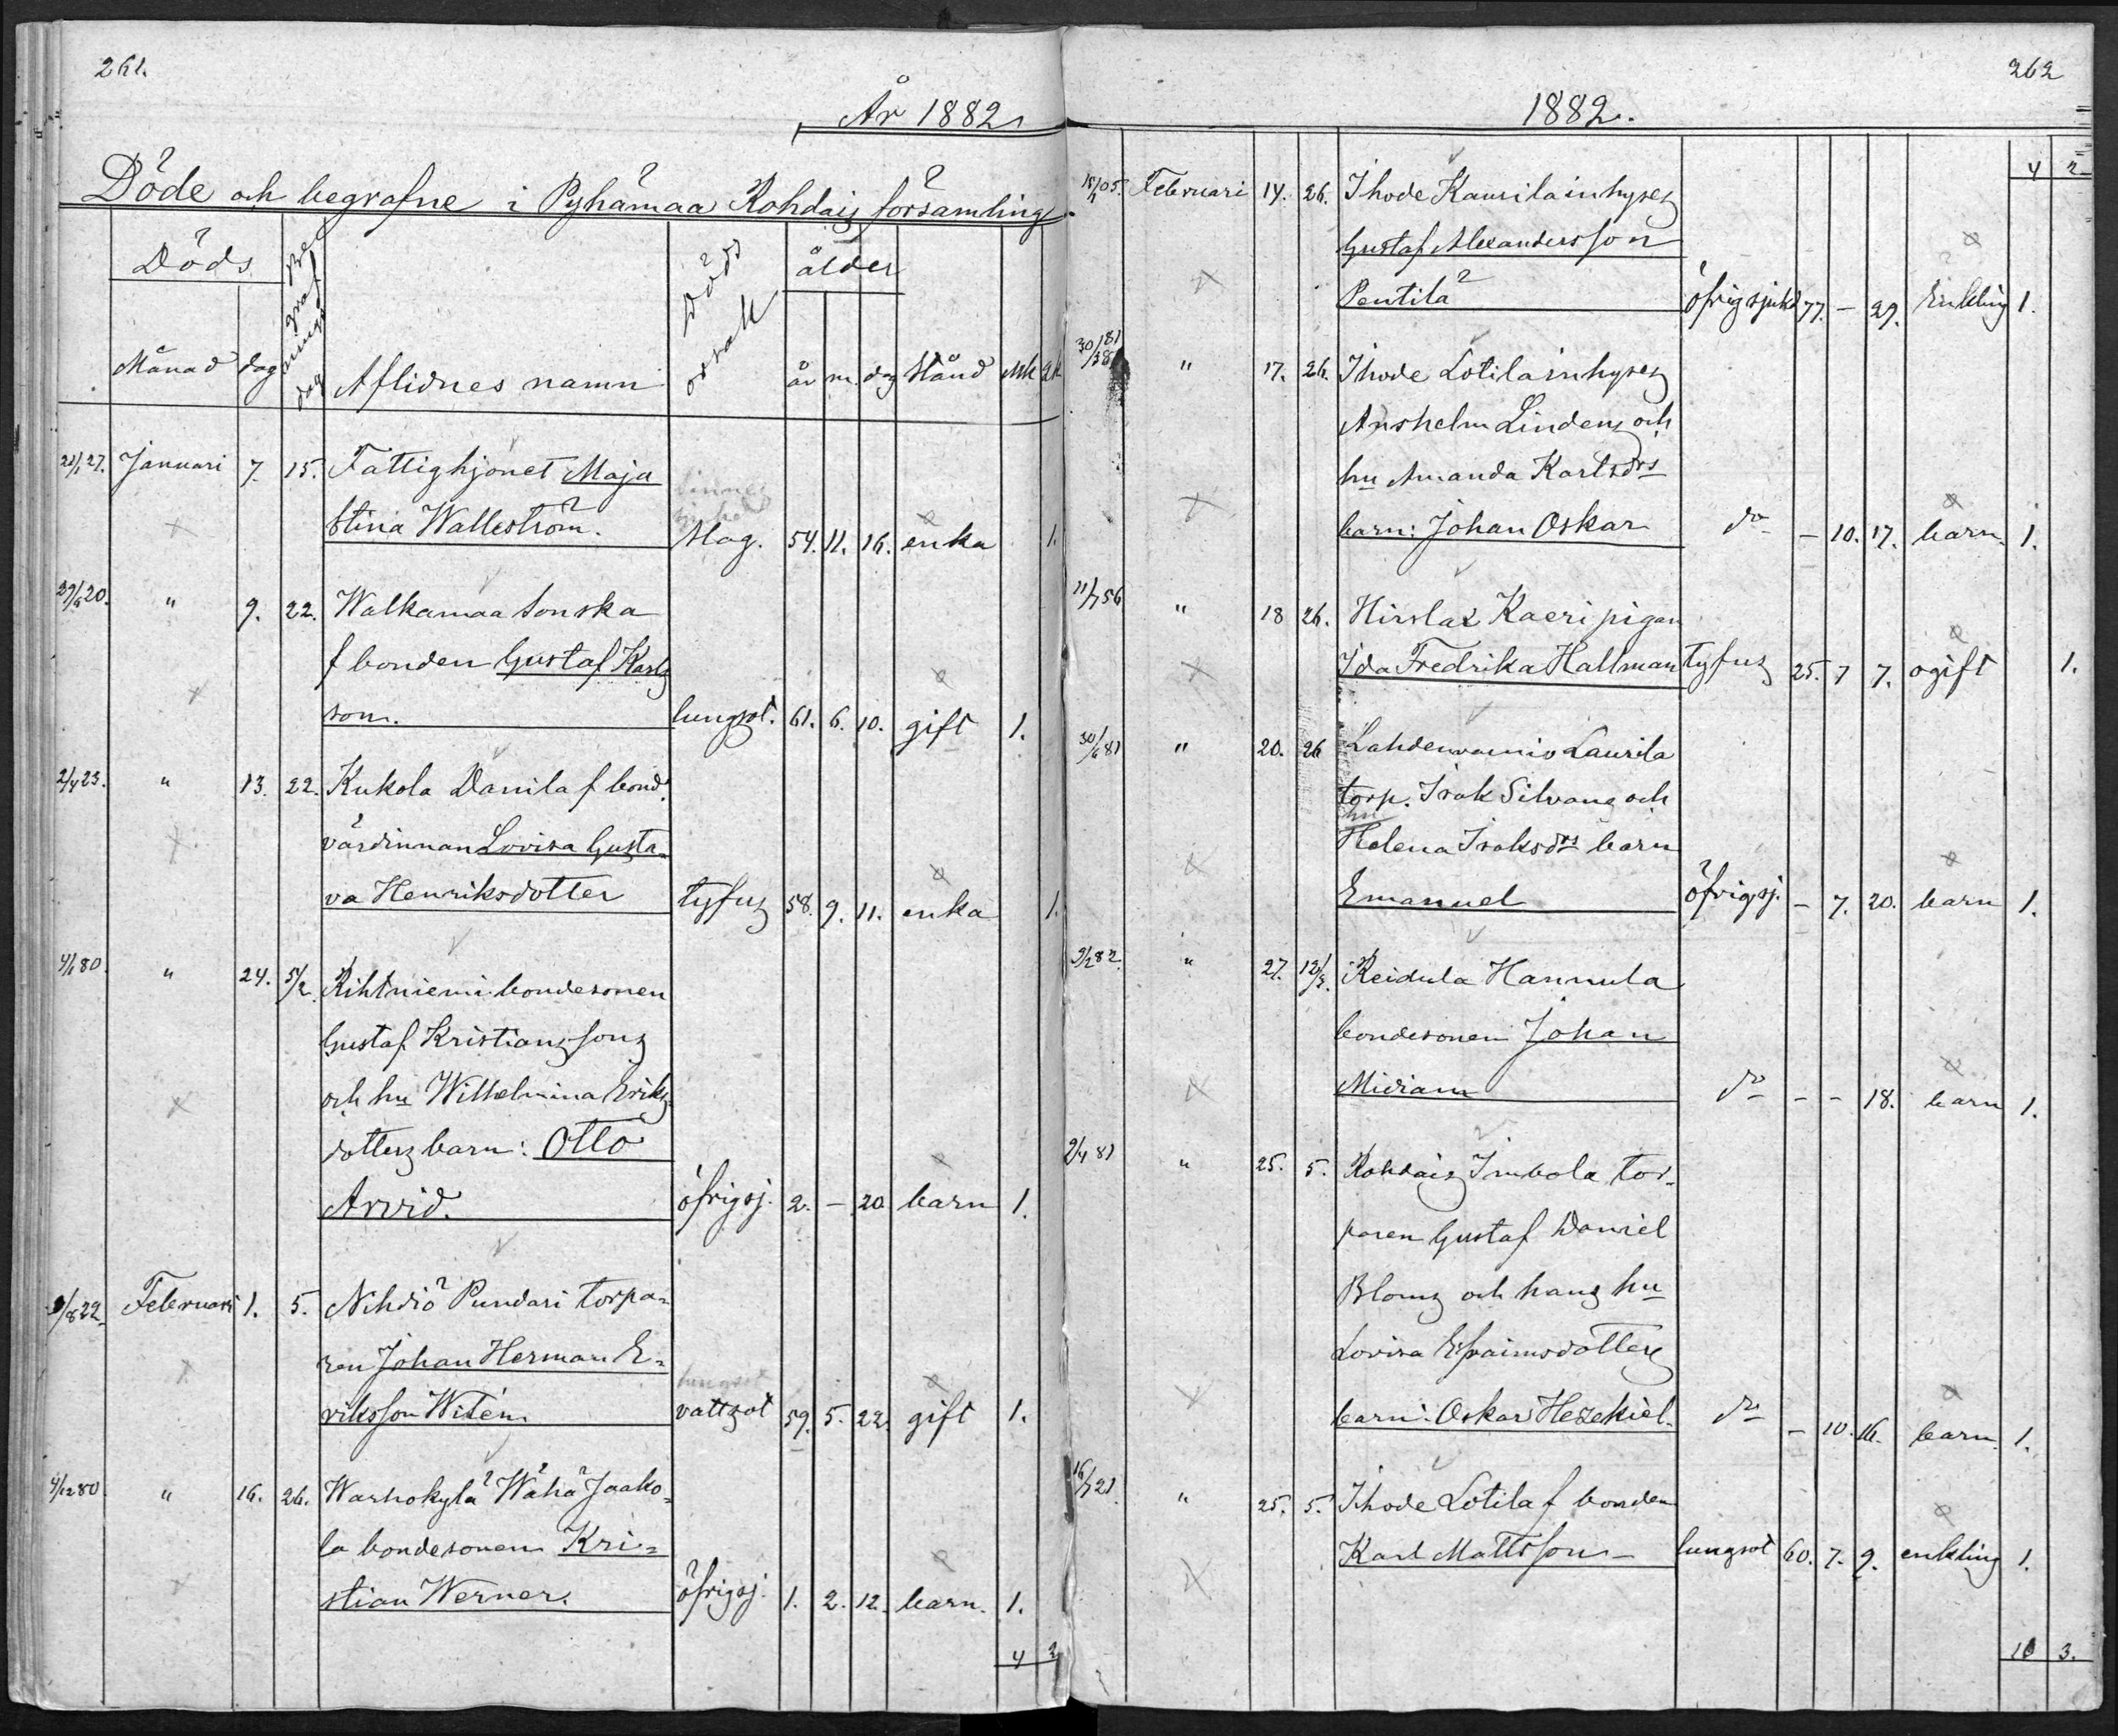 261.
År 1882
Döde och begrafne i Pyhämaa Rohdais församling
Döds
Begrafnings dag
Döds orsak
ålder
Månad dag Aflidnes namn år m. dag Stånd Mk Qk
21/1 27. Januari 7. 15. Fattighjonet Maja
Stina Wallström. Slag. 54. 11. 16. enka 1.
29/6 20. " 9. 22. Walkamaa Sonska
f bonden Gustaf Karls
son. lungsot. 61. 6. 10. gift 1.
2/4 23. " 13. 22. Kukola Danila f bond
värdinnan Lovisa Gusta-
va Henriksdotter tyfus 58. 9. 11. enka 1.
4/1 80. " 24. 5/2. Rihtniemi bondesonen
Gustaf Kristianssons
och hu Wilhelmina Eriks
dotters barn: Otto
Arvid. öfrigsj. 2. - 20 barn 1.
9/8 22. Februari 1. 5. Nihdiö Pundari torpa-
ren Johan Herman E-
riksson Witén. lungsot
vattsot 59. 5. 22. gift 1.
4/12 80. " 16. 26. Warhokylä Wähä Jaako-
la bondesonen Kri=
stian Werner. öfrigsj. 1. 2. 12. barn. 1.
4 2
262
1882.
4 2
Februari 14. 26. Ihode Kaurila inhyses
Gustaf Alexandersson
Pentilä öfrigsjukd 77. - 29. Enkling 1.
" 17. 26. Ihode Lotila inhyses
Anshelm Lindens och
hu Amanda Karlsdrs
barn: Johan Oskar do - 10. 17. barn. 1.
11/7 56 " 18 26. Hirslax Kaeri pigan
Ida Fredrika Hallman tyfus 25. 7 7. ogift 1.
30/6 81 " 20. 26 Lahdenvainio Laurila
torp. Isak Silvans och
hu
Helena Isaksdrs barn
Emanuel öfrigsj. - 7. 20. barn 1.
9/2 82. " 27. 12/3. Reidula Hannula
bondesonen Johan
Midiam do - - 18. barn 1.
9/4 81 " 25. 5. Rohdais Imbola tor-
paren Gustaf Daniel
Bloms och hans hu
Lovisa Efraimsdotters
barn: Oskar Hezekiel. do - 10. 16. barn. 1.
16/7 21. " 25. 5. Ihode Lotila f bonden
Karl Mattsson - lungsot 60. 7. 9. enkling 1.
10 3.